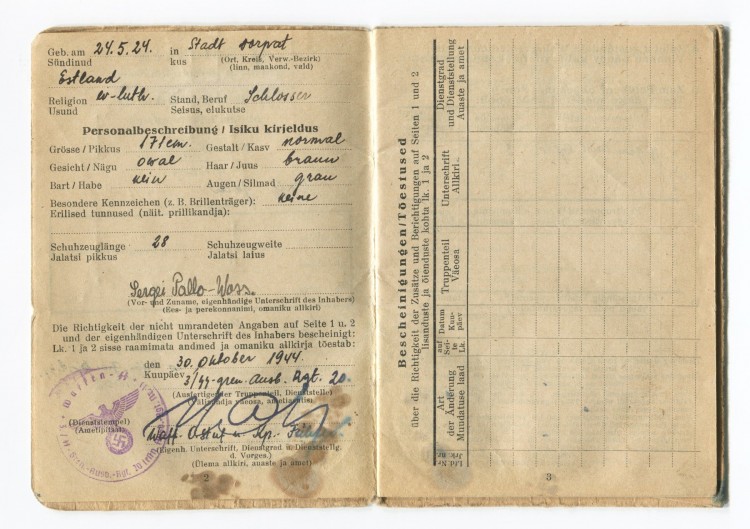 Geb. am 24.5.24. in Stadt Dorpat
Sündinud kus (Ort, Kreis, Verw.-Bezirk)
(linn, maakond, vald)
Estland
Religion ev-luth. Stand, Beruf Schlosser
Usund Seisus, elukutse
Personalbeschreibung / Isiku kirjeldus
Grösse / Pikkus 171cm. Gestalt / Kasv normal
Gesicht / Nägu oval Haar / Juus braun
Bart / Habe kein Augen / Silmad grau
Besondere Kennzeichen (z. B. Brillenträger): keine
Erilised tunnused (näit. prillikandja):
Schuhzeuglänge 28 Schuhzeugweite
Jalatsi pikkus Jalatsi laius
Sergei Pallo-Woss.
(Vor- und Zuname, eigenhändige Unterschrift des Inhabers)
(Ees- ja perekonnanimi, omaniku allkiri)
Die Richtigkeit der nicht umrandeten Angaben auf Seite 1 u. 2
und der eigenhändigen Unterschrift des Inhabers bescheinigt:
Lk. 1 ja 2 sisse raamimata andmed ja omaniku allkirja tõestab:
den 30. Oktober 1944.
Kuupäev
3/44-gren. Ausb. Rgt. 20.
(Ausfertigender Truppenteil, Dienststelle)
(Dienststempel)
(Ametipitsat)
(Eigenh. Unterschrift, Dienstgrad u. Dienststellg.
d. Vorges.)
(Ülema allkiri, auaste ja amet)
2
Bescheinigungen/Tõestused
über die Richtigkeit der Zusätze und Berichtigungen auf Seiten 1 und 2
lisanduste ja õienduste kohta lk. 1 ja 2
Lfd. Nr.
Jrk. nr.
Art
der Änderung
Muudatuse laad
auf Seite
Lk
Datum
Kuupäev
Truppenteil
Väeosa
Unterschrift
Allkiri
Dienstgrad
und Dienststellung
Auaste ja amet
3